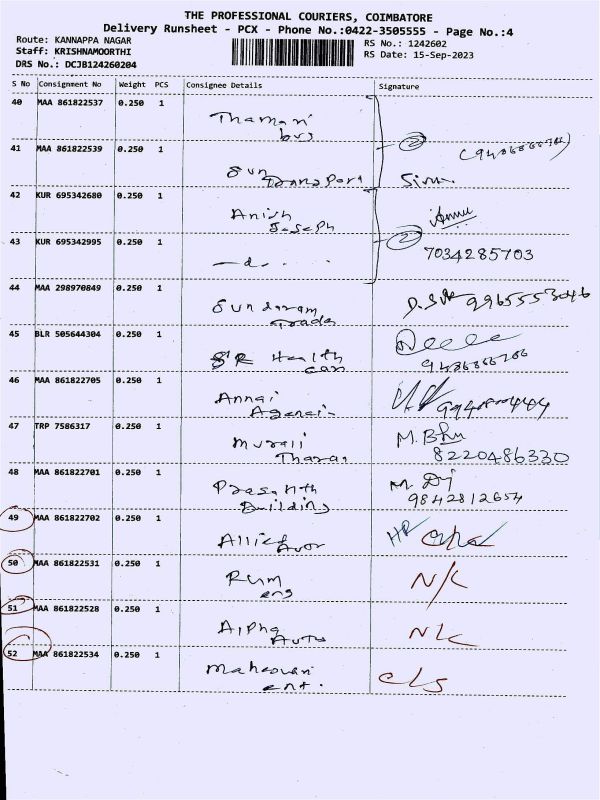 THE PROFESSIONAL COURIERS, COIMBATORE
Delivery Runsheet - PCX - Phone No.:0422-3505555 - Page No.:4
Route: KANNAPPA NAGAR
RS No.: 1242602
Staff: KRISHNAMOORTHI
RS Date: 15-Sep-2023
DRS No.: DCJB124260204
S No Consignment No Weight PCS Consignee Details Signature
40 MAA 861822537 0.250 1
41 MAA 861822539 0.250 1 Sun
42 KUR 695342680 0.250 1 Anish
Joseph
43 KUR 695342995 0.250 1 7034285703
44 MAA 298970849 0.250 1 Sundaram 9965553046
Trade
45 BLR 505644304 0.250 1 SR Health
46 MAA 861822705 0.250 1 Annai
47 TRP 7586317 0.250 1 Murali
8220486330
48 MAA 861822701 0.250 1 Prasanth
Building 9842812654
49 MAA 861822702 0.250 1 Allied
50 MAA 861822531 0.250 1 N/C
eng
51 MAA 861822528 0.250 1 Alpha N/C
Auto
52 MAA 861822534 0.250 1 Maheswari
ent. c/s